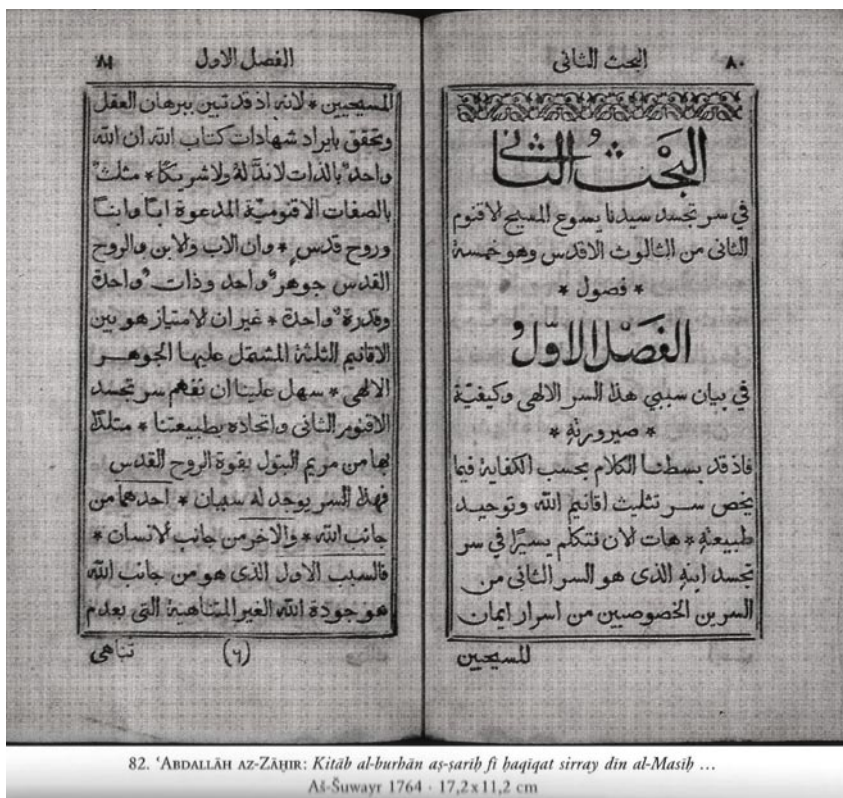 ٨٠ البحث الثاني
البَحْث الثاني
في سر تجسد سيدنا يسوع المسيح الاقنوم
الثاني من الثالوث الاقدس وهو خمسة
* فصول *
الفَصْل الاوّل
في بيان سببي هذا السر الالهي وكيفيّة
* صيرورتهِ *
فاذ قد بسطنا الكلام بحسب الكفاية فيما
يخص سر تثليث اقانيم الله وتوحيد
طبيعتهِ * هات الان نتكلم يسيرًا في سر
تجسد ابنهِ الذي هو السر الثاني من
السرين الخصوصيين من اسرار ايمان
المسيحيين
الفصل الاول ٨١
المسيحيين * لانه اذ قد تبين ببرهان العقل
وتحقق بايراد شهادات كتاب الله ان الله
واحدٌ بالذات لا ندَّ لهُ ولا شريكًا * مثلثٌ
بالصفات الاقنوميّة المدعوة ابًا وابنًا
وروح قدسٍ * وان الاب والابن والروح
القدس جوهرٌ واحد وذاتٌ واحدة
وقدرةٌ واحدة * غير ان الامتياز هو بين
الاقانيم الثلثة المشتمل عليها الجوهر
الالهي * سهل علينا ان نفهم سر تجسد
الاقنوم الثاني واتحاده بطبيعتنا * متلدًا
بها من مريم البتول بقوة الروح القدس
فهذا السر يوجد له سببان * احدهما من
جانب الله * والاخر من جانب الانسان *
فالسبب الاول الذي هو من جانب الله
هو جودة الله الغير المتناهية التي بعدم
(٦) تناهي
82. ʿABDALLĀH AZ-ZĀḪIR: Kitāb al-burhān aṣ-ṣarīḥ fī ḥaqīqat sirray dīn al-Masīḥ …
Aš-Šuwayr 1764 · 17,2 x 11,2 cm